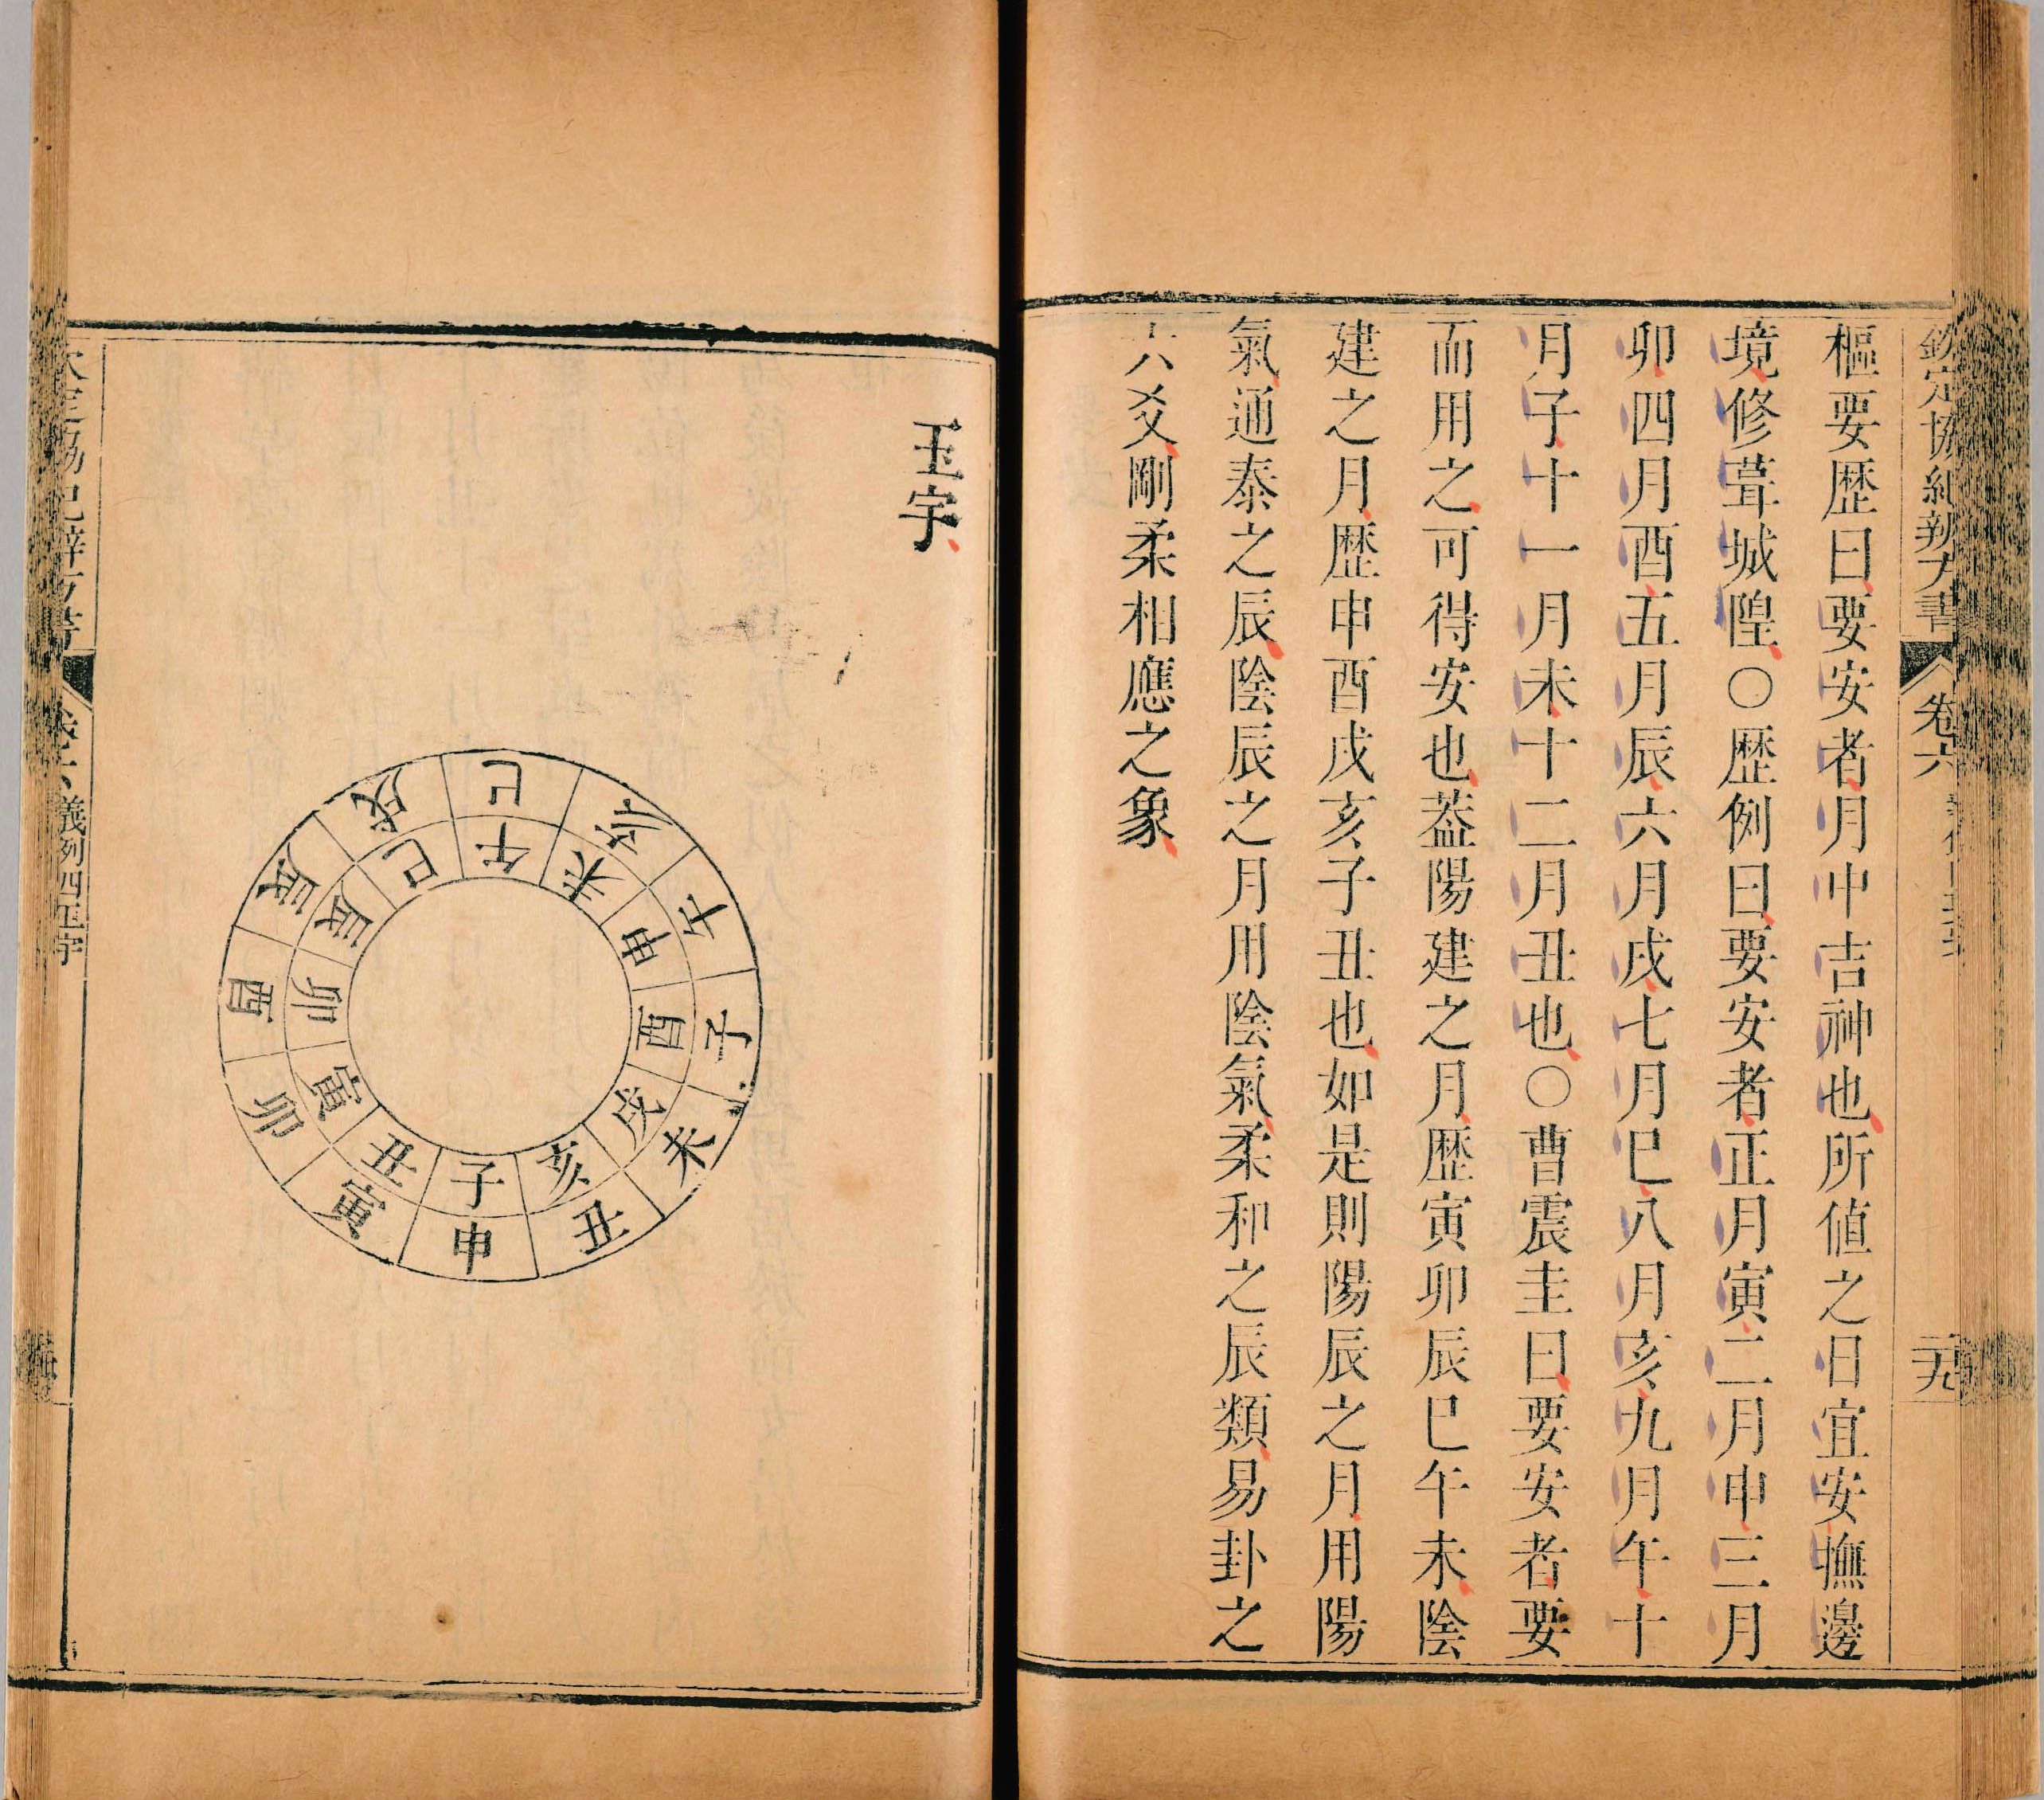 欽定協紀辨方書
卷六
二十九
樞要歴曰要安者月中吉神也所值之日宜安撫邊
境修葺城隍〇歴例曰要安者正月寅二月申三月
卯四月酉五月辰六月戌七月巳八月亥九月午十
月子十一月未十二月丑也〇曹震圭曰要安者要
而用之可得安也葢陽建之月歴寅卯辰巳午未陰
建之月歴申酉戌亥子丑也如是則陽辰之月用陽
氣通泰之辰陰辰之月用陰氣柔和之辰類易卦之
六爻剛柔相應之象
玉宇
巳亥午子未丑申寅卯酉辰戌
午未申酉戌亥子丑寅卯辰巳
欽定協紀辨方書
卷六 義例四 玉宇